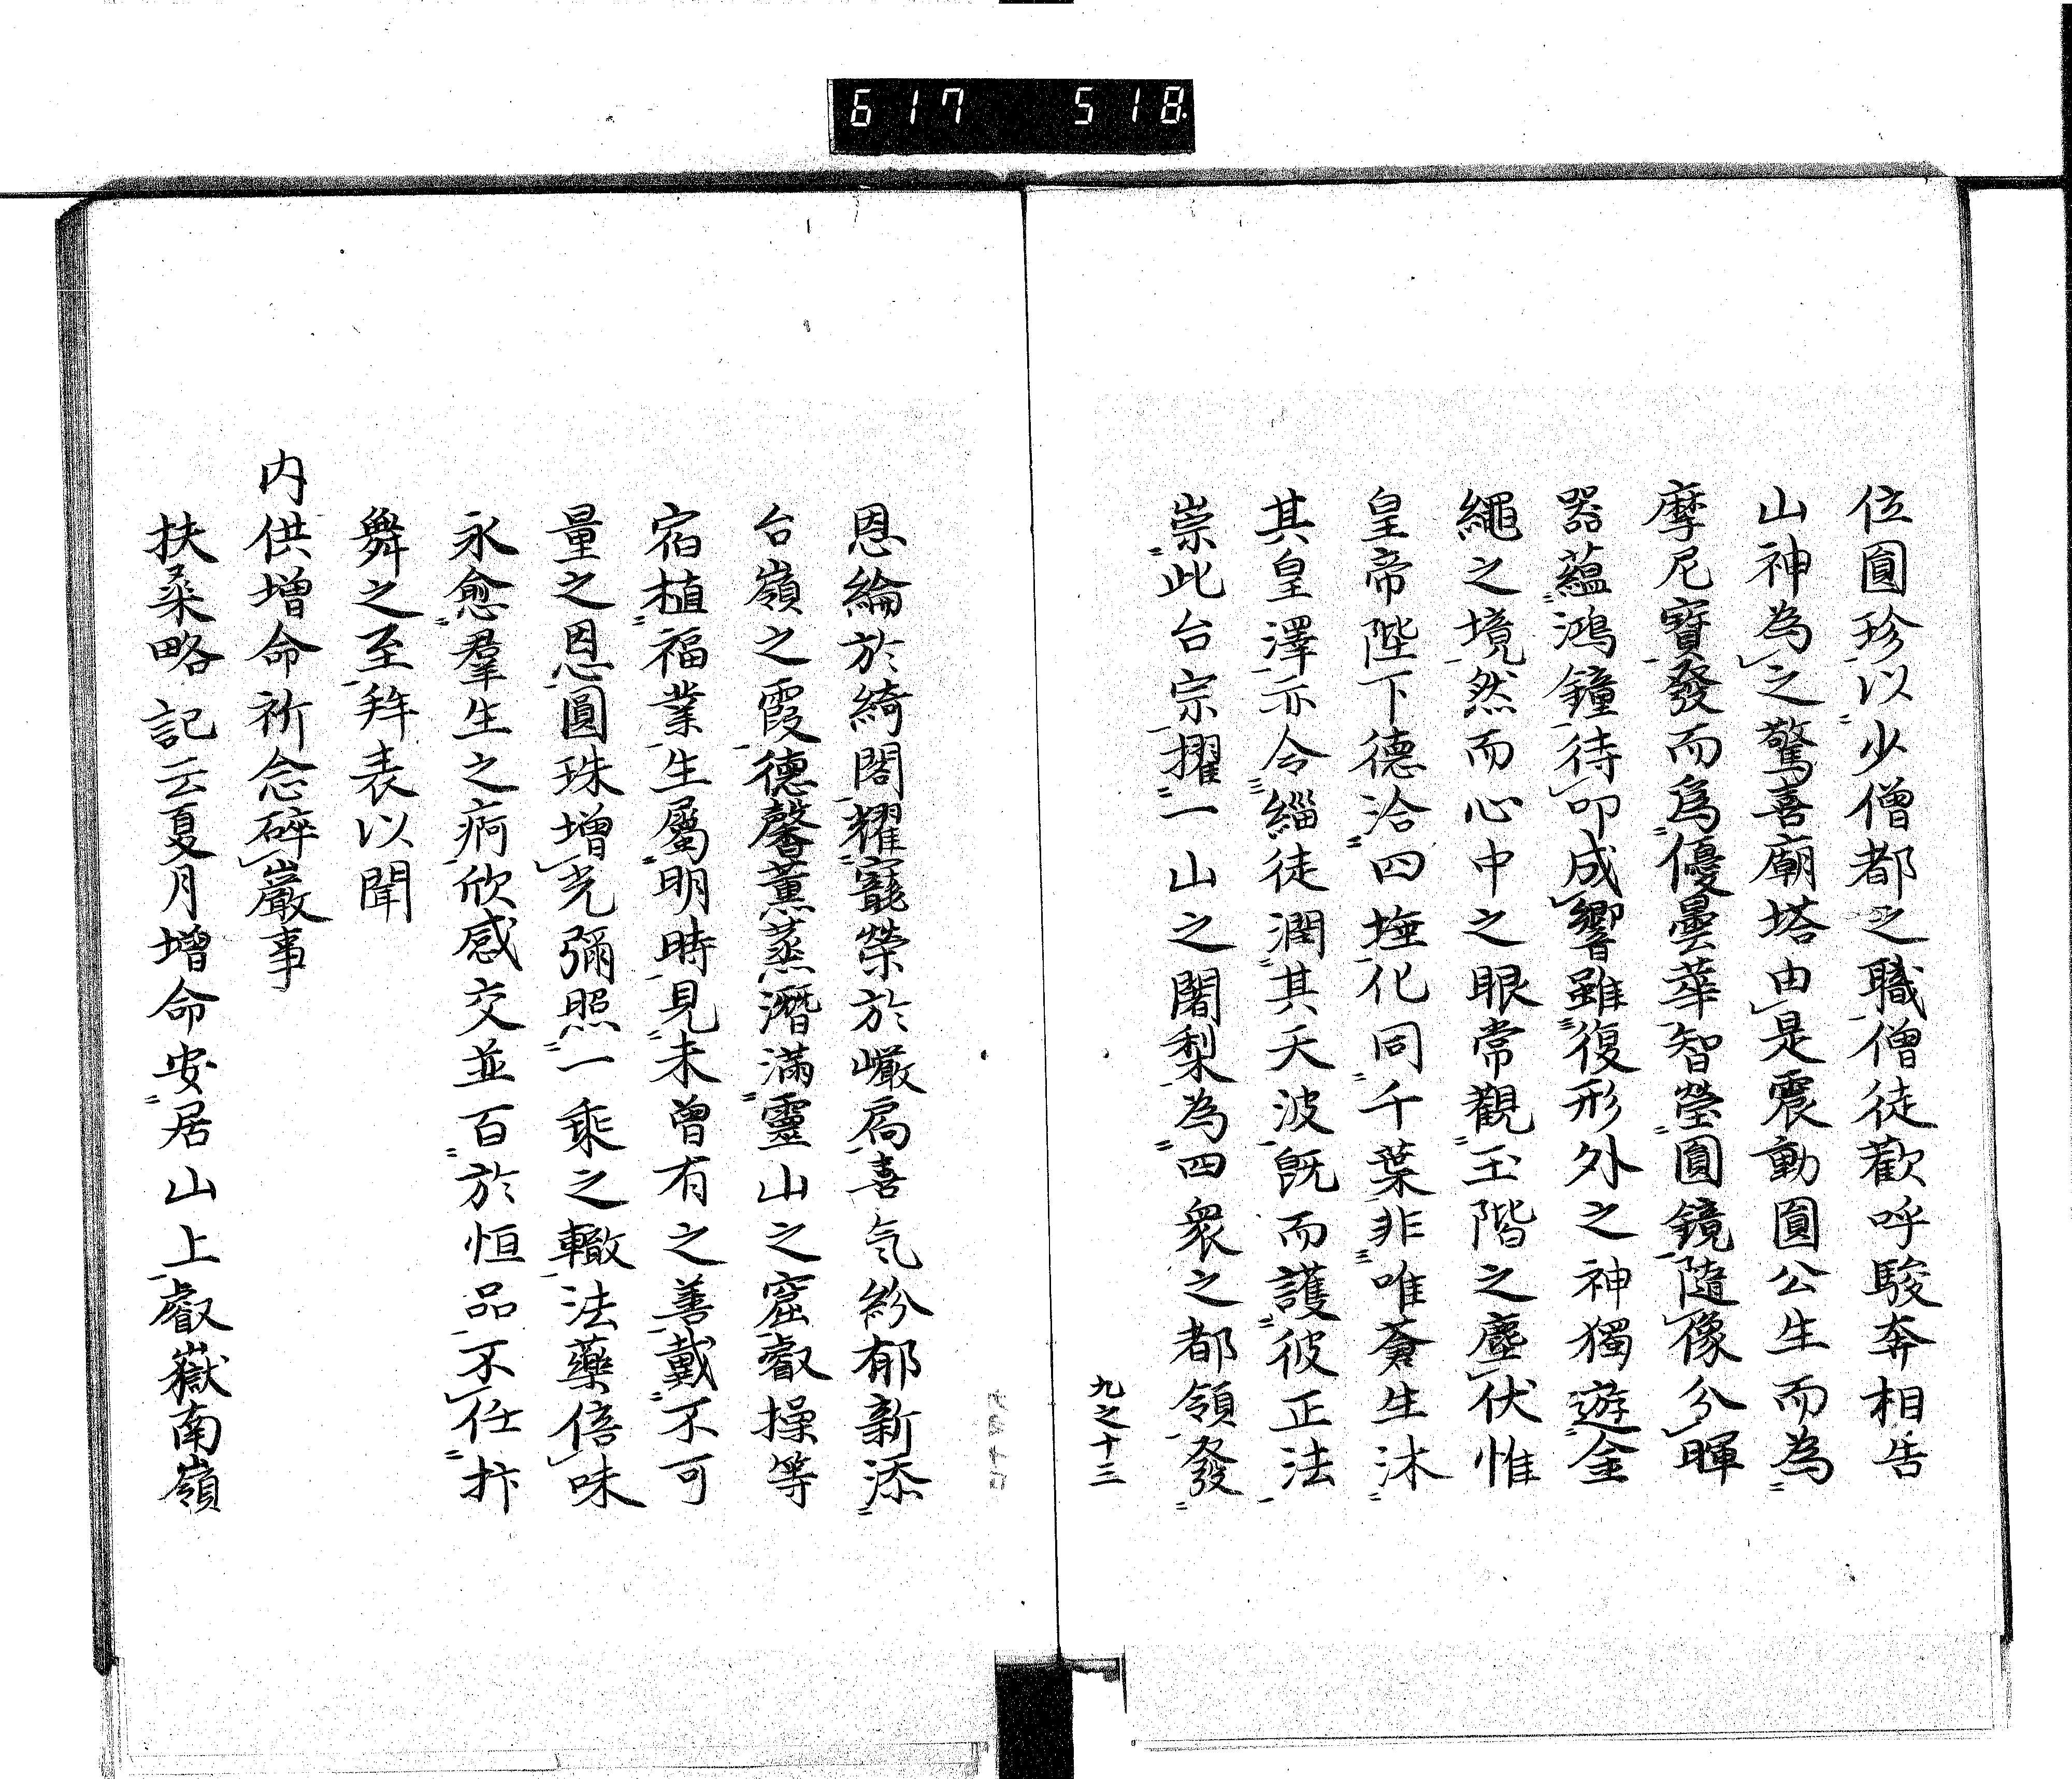 617 518
位圓珍以少僧都之職僧徒歡呼駿奔相告
山神為之驚喜廟塔由是震動圓公生而為
摩尼寶發而為優曇華智瑩圓鏡隨像分暉
器蘊鴻鐘待叩成響雖復形外之神獨遊金
繩之境然而心中之眼常觀玉階之塵伏惟
皇帝陛下德洽四埵化同千葉非唯蒼生沐
其皇澤亦令緇徒潤其天波既而護彼正法
崇此台宗擢一山之闍梨為四衆之都領發
九之十三
恩綸於綺閣耀寵榮於巗扃喜気紛郁新添
台嶺之霞德馨薫蒸潛滿靈山之窟叡操等
宿植福業生屬明時見未曾有之善戴不可
量之恩圓珠增光彌照一乘之轍法藥倍味
永愈羣生之痾欣感交並百於恒品不任抃
舞之至拜表以聞
内供增命祈念碎巖事
扶桒略記云夏月增命安居山上叡嶽南嶺